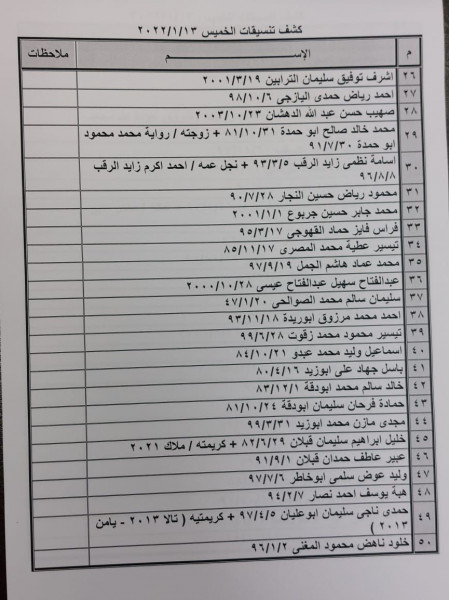 كشف تنسيقات الخميس ٢٠٢٢/١/١٣
م الإســـم ملاحظات
٢٦ اشرف توفيق سليمان الترابين ٢٠٠١/٣/١٩
٢٧ احمد رياض حمدى اليازجى ٩٨/١٠/٦
٢٨ صهيب حسن عبد الله الدهشان ٢٠٠٣/١٠/٢٣
٢٩ محمد خالد صالح ابو حمدة ٨١/١٠/٣١ + زوجته / رواية محمد محمود
ابو حمدة ٩١/٧/٣٠
٣٠ اسامة نظمى زايد الرقب ٩٣/٣/٥ + نجل عمه / احمد اكرم زايد الرقب
٩٦/٨/٨
٣١ محمود رياض حسين النجار ٩٠/٧/٢٨
٣٢ محمد جابر حسين جربوع ٢٠٠١/١/١
٣٣ فراس فايز حماد القهوجي ٩٥/٣/١٧
٣٤ تيسير عطية محمد المصرى ٨٥/١١/١٧
٣٥ محمد عماد هاشم الجمل ٩٧/٩/١٩
٣٦ عبدالفتاح سهيل عبدالفتاح عيسى ٢٠٠٠/١٠/٢٨
٣٧ سليمان سالم محمد الصوالحي ٤٧/١/٢٠
٣٨ احمد محمد مرزوق ابوريدة ٩٣/١١/١٨
٣٩ تيسير محمود محمد زقوت ٩٩/٦/٢٨
٤٠ اسماعيل وليد محمد عبدو ٨٤/١٠/٢١
٤١ باسل جهاد على ابوزيد ٨٠/٤/١٦
٤٢ خالد سالم محمد ابودقة ٨٣/١٢/١
٤٣ حمادة فرحان سليمان ابودقة ٨١/١٠/٢٤
٤٤ مجدى مازن محمد ابوزيد ٩٩/٣/٣١
٤٥ خليل ابراهيم سليمان قبلان ٨٢/٦/٢٩ + كريمته / ملاك ٢٠٢١
٤٦ عبير عاطف حمدان قبلان ٩١/٩/١
٤٧ وليد عوض سلمى ابوخاطر ٩٧/٧/٦
٤٨ هبة يوسف احمد نصار ٩٤/٢/٧
٤٩ حمدى ناجى سليمان ابوعليان ٩٧/٤/٥ + كريمتيه ( تالا ٢٠١٣ - يامن
٢٠١٣ )
٥٠ خلود ناهض محمود المغنى ٩٦/١/٢